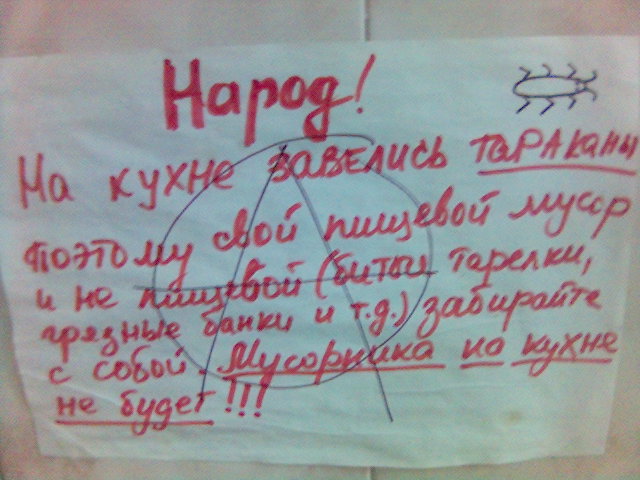 Народ!
На кухне завелись тараканы
Поэтому свой пищевой мусор
и не пищевой (битые тарелки,
грязные банки и т.д.) забирайте
с собой. Мусорника на кухне
не будет!!!